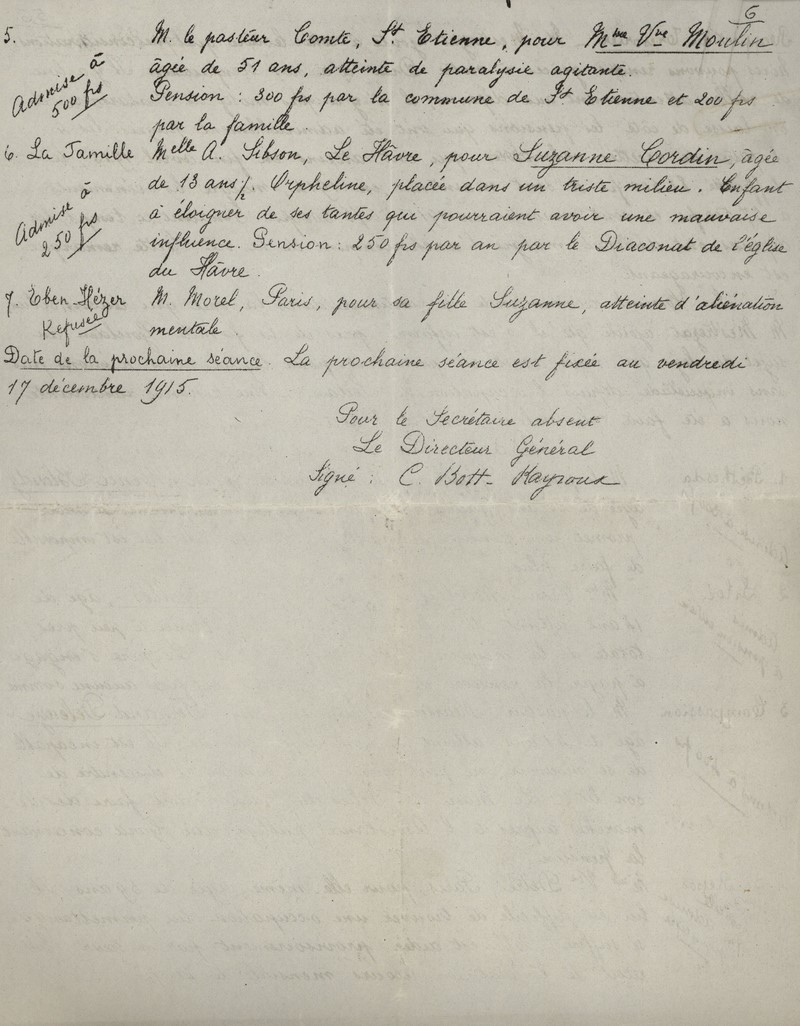 6
5. M. le pasteur Comte, St. Etienne, pour Mme Vve Moulin
âgée de 51 ans, atteinte de paralysie agitante.
Admise à
500 frs
Pension : 300 frs par la commune de St Etienne et 200 frs
par la famille.
6. La Famille Melle A. Sibson, Le Hâvre, pour Suzanne Cordin, âgée
de 13 ans ½. Orpheline, placée dans un triste milieu. Enfant
Admise à
250 frs
à éloigner de ses tantes qui pourraient avoir une mauvaise
influence. Pension : 250 frs par an par le Diaconat de l'église
du Hâvre.
7. Eben-Hézer M. Morel, Paris, pour sa fille Suzanne, atteinte d'aliénation
Refusée
mentale.
Date de la prochaine séance. La prochaine séance est fixée au vendredi
17 décembre 1915.
Pour le Secrétaire absent
Le Directeur Général
Signé : C. Bost-